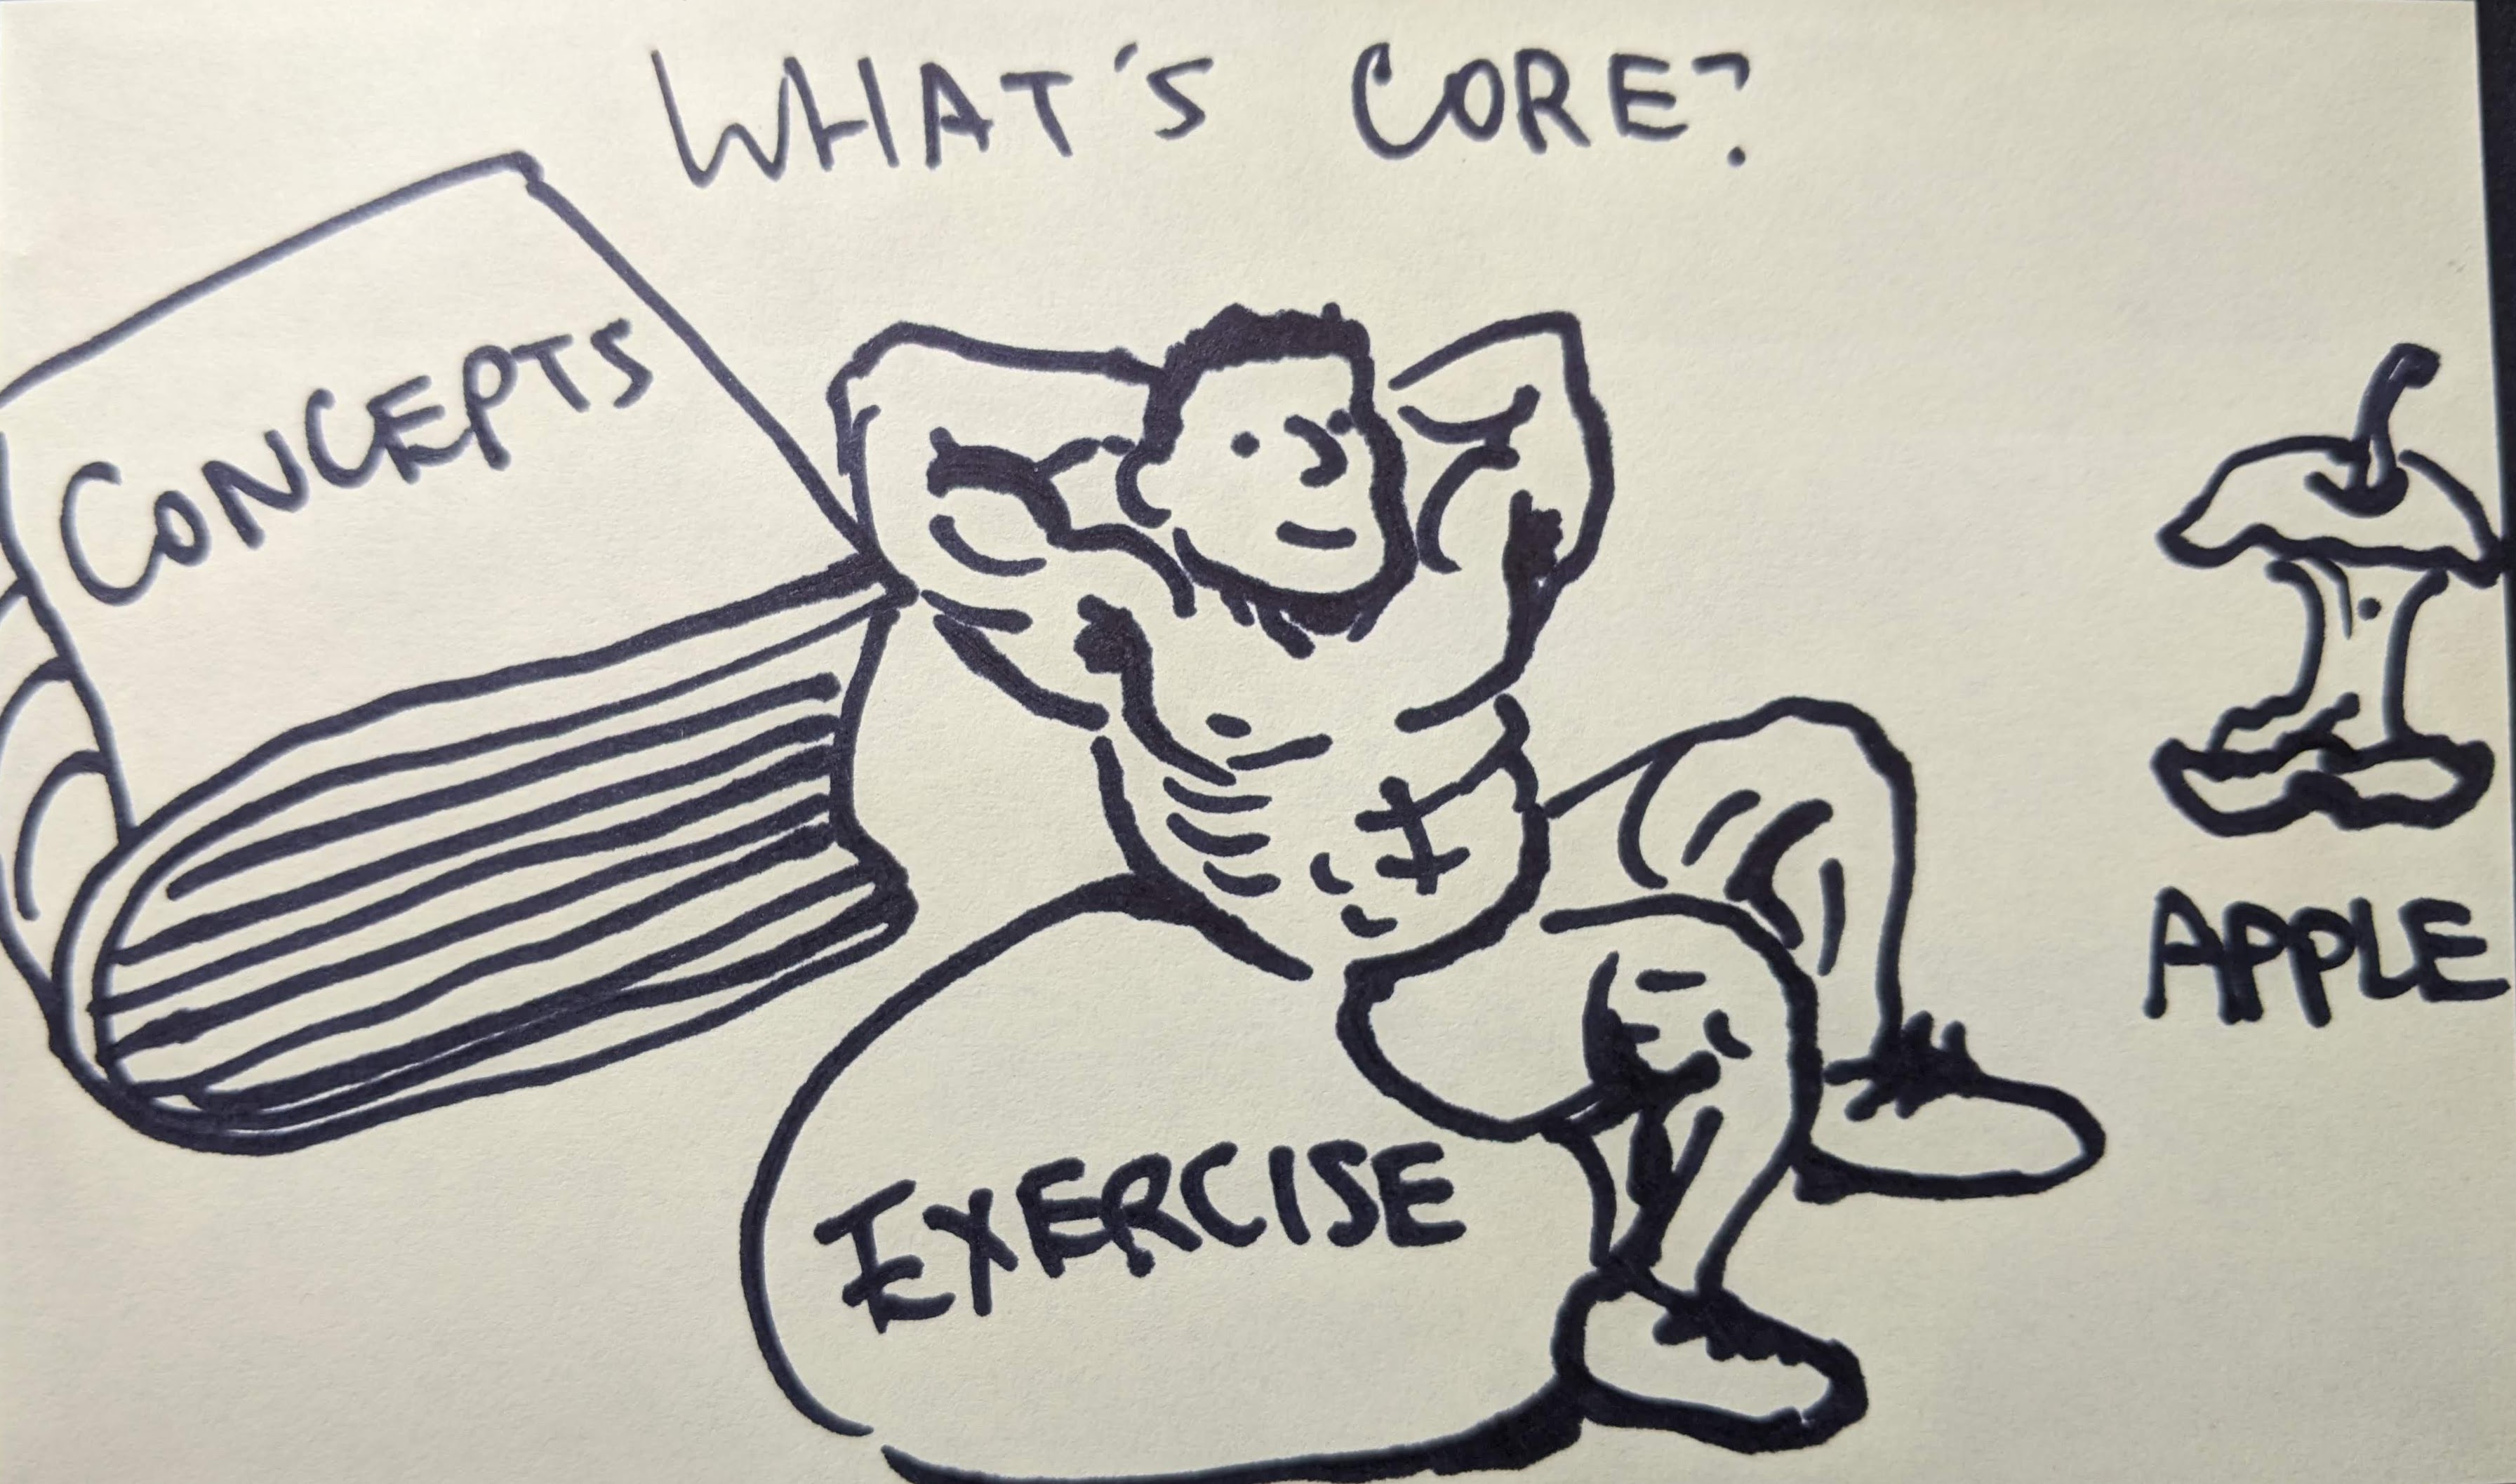 WHAT'S CORE?
CONCEPTS
EXERCISE
APPLE